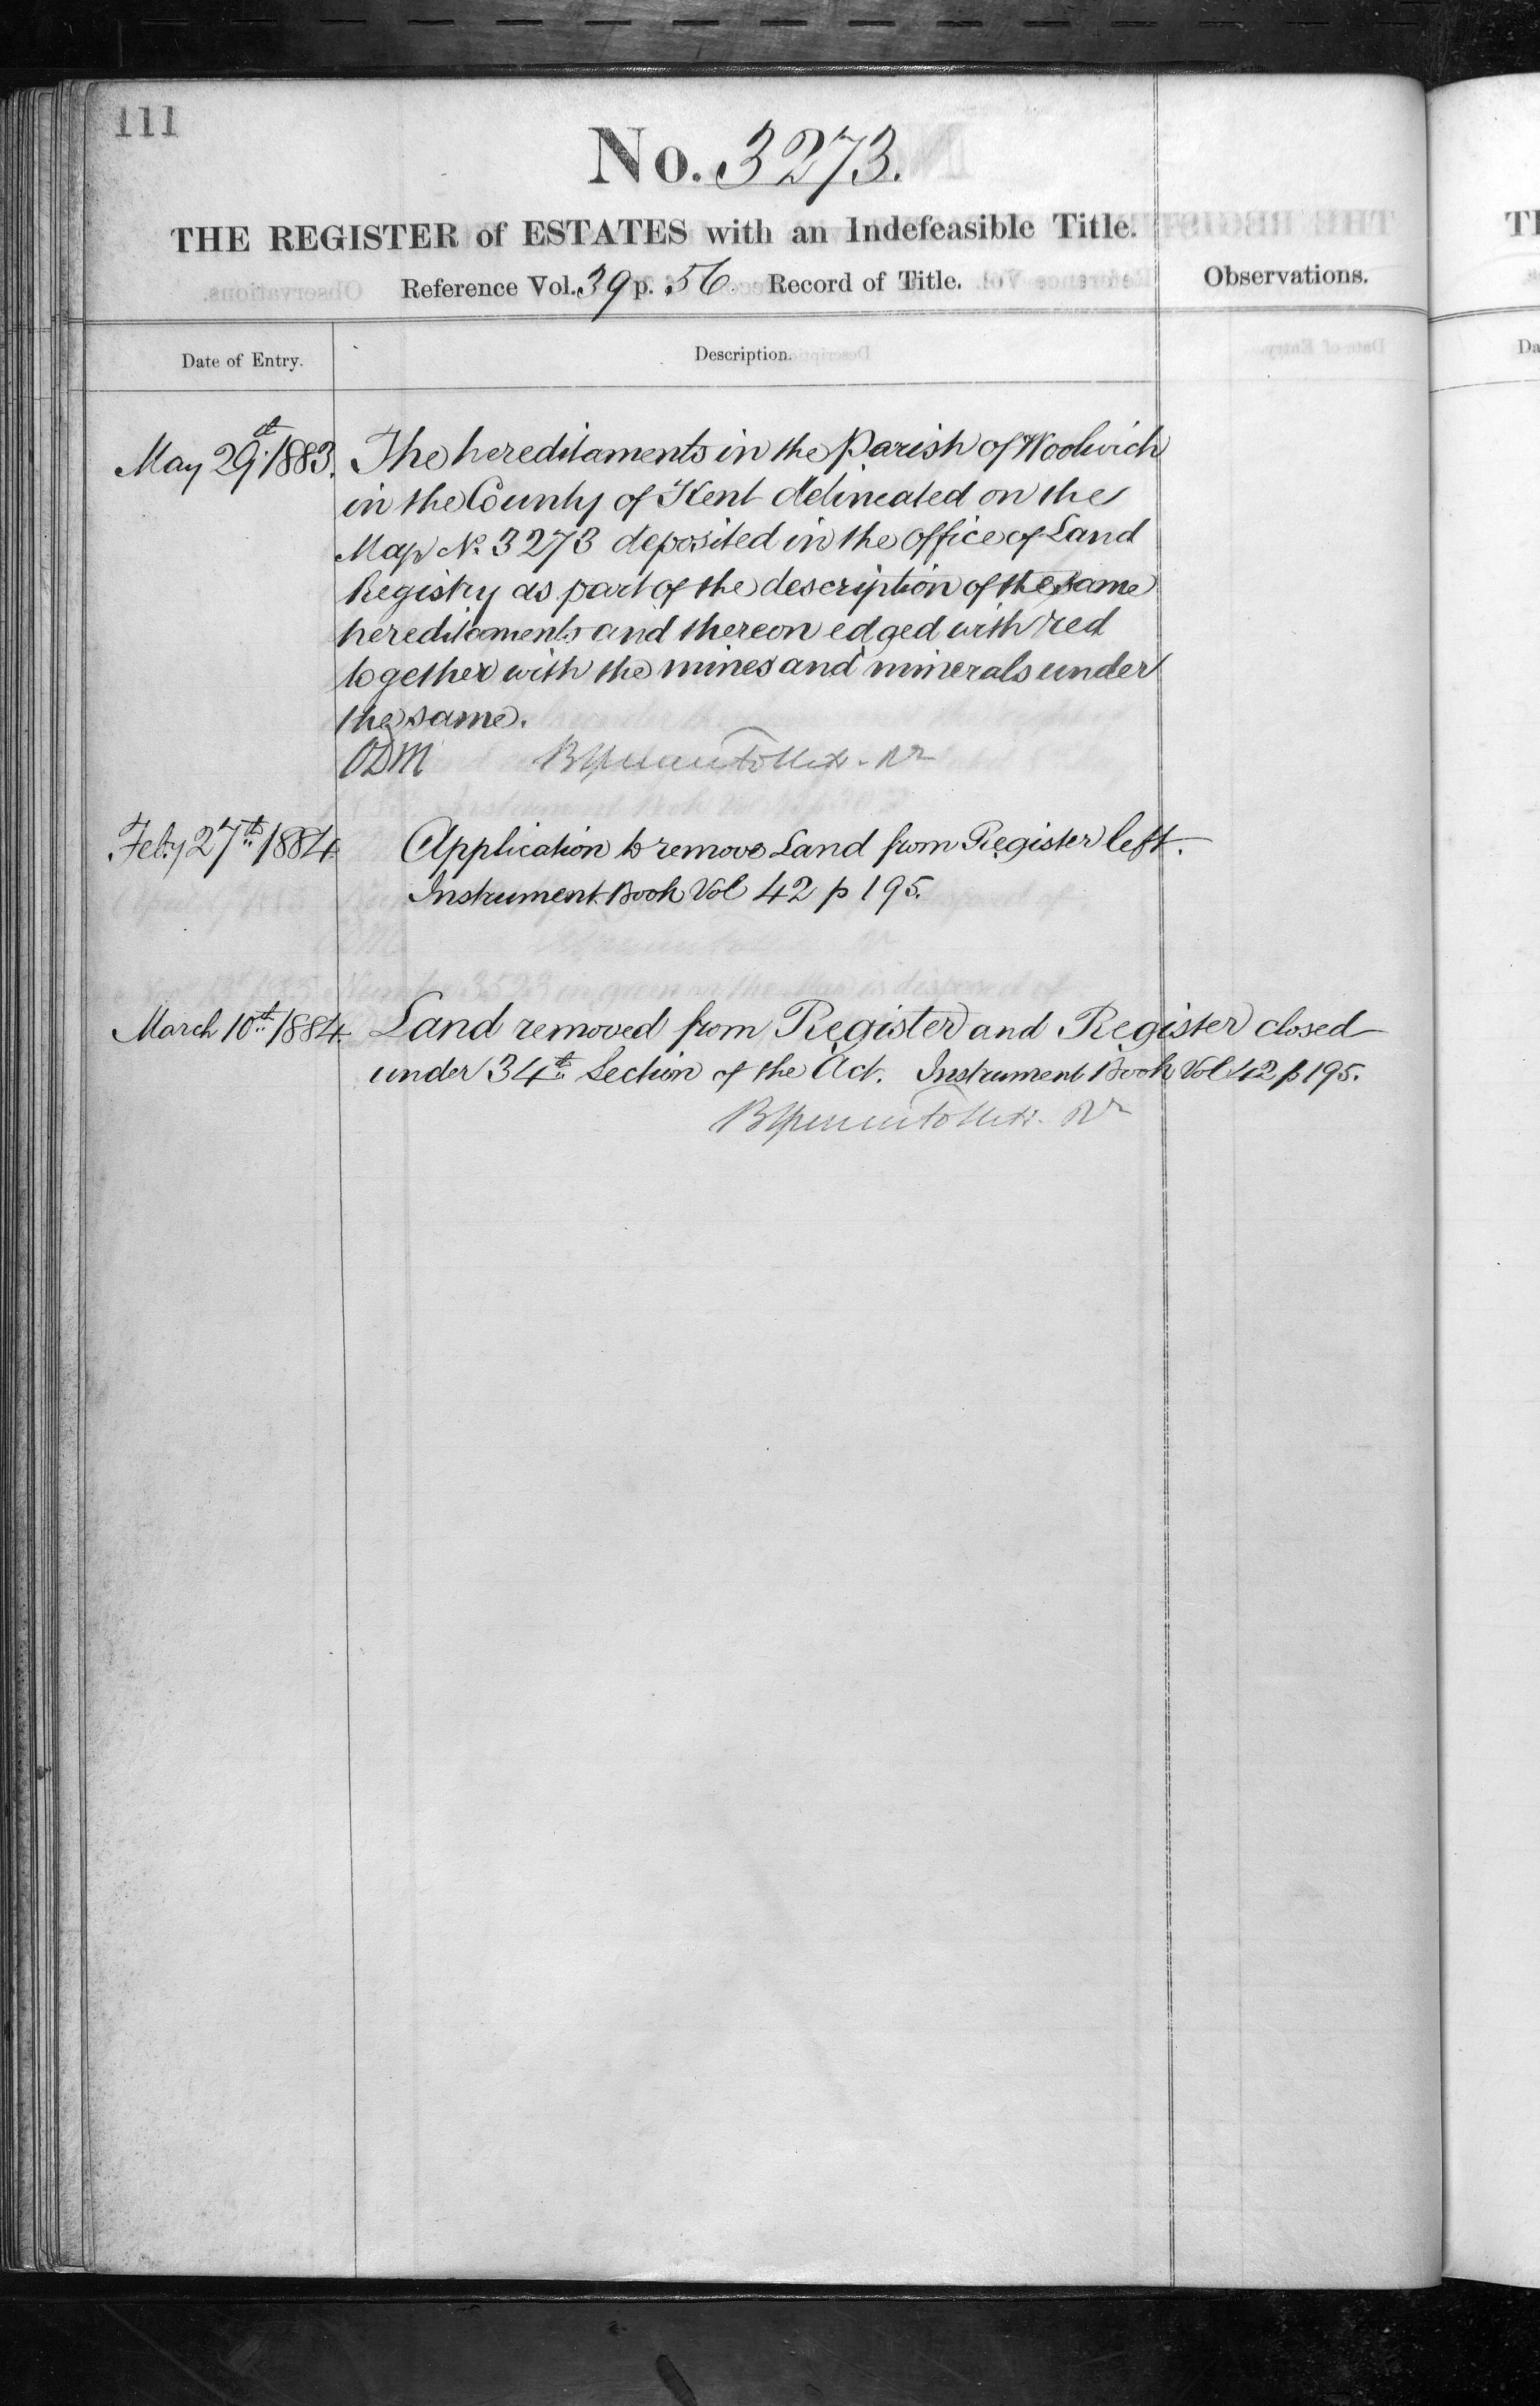 111
No. 3273.
THE REGISTER of ESTATES with an Indefeasible Title.
Reference Vol. 39 p. 56. Record of Title.
Observations.
Date of Entry.
Description.
May 29th 1883. The hereditaments in the Parish of Woolwich
in the County of Kent delineated on the
Map No. 3273 deposited in the office of Land
Registry as part of the description of the same
hereditaments and thereon edged with red
together with the mines and minerals under
the same.
ODM
Feby 27th 1884. Application to remove Land from Register left.
Instrument Book Vol 42 p 195.
March 10th 1884. Land removed from Register and Register closed
under 34th Section of the Act. Instrument Book Vol 42 p 195.